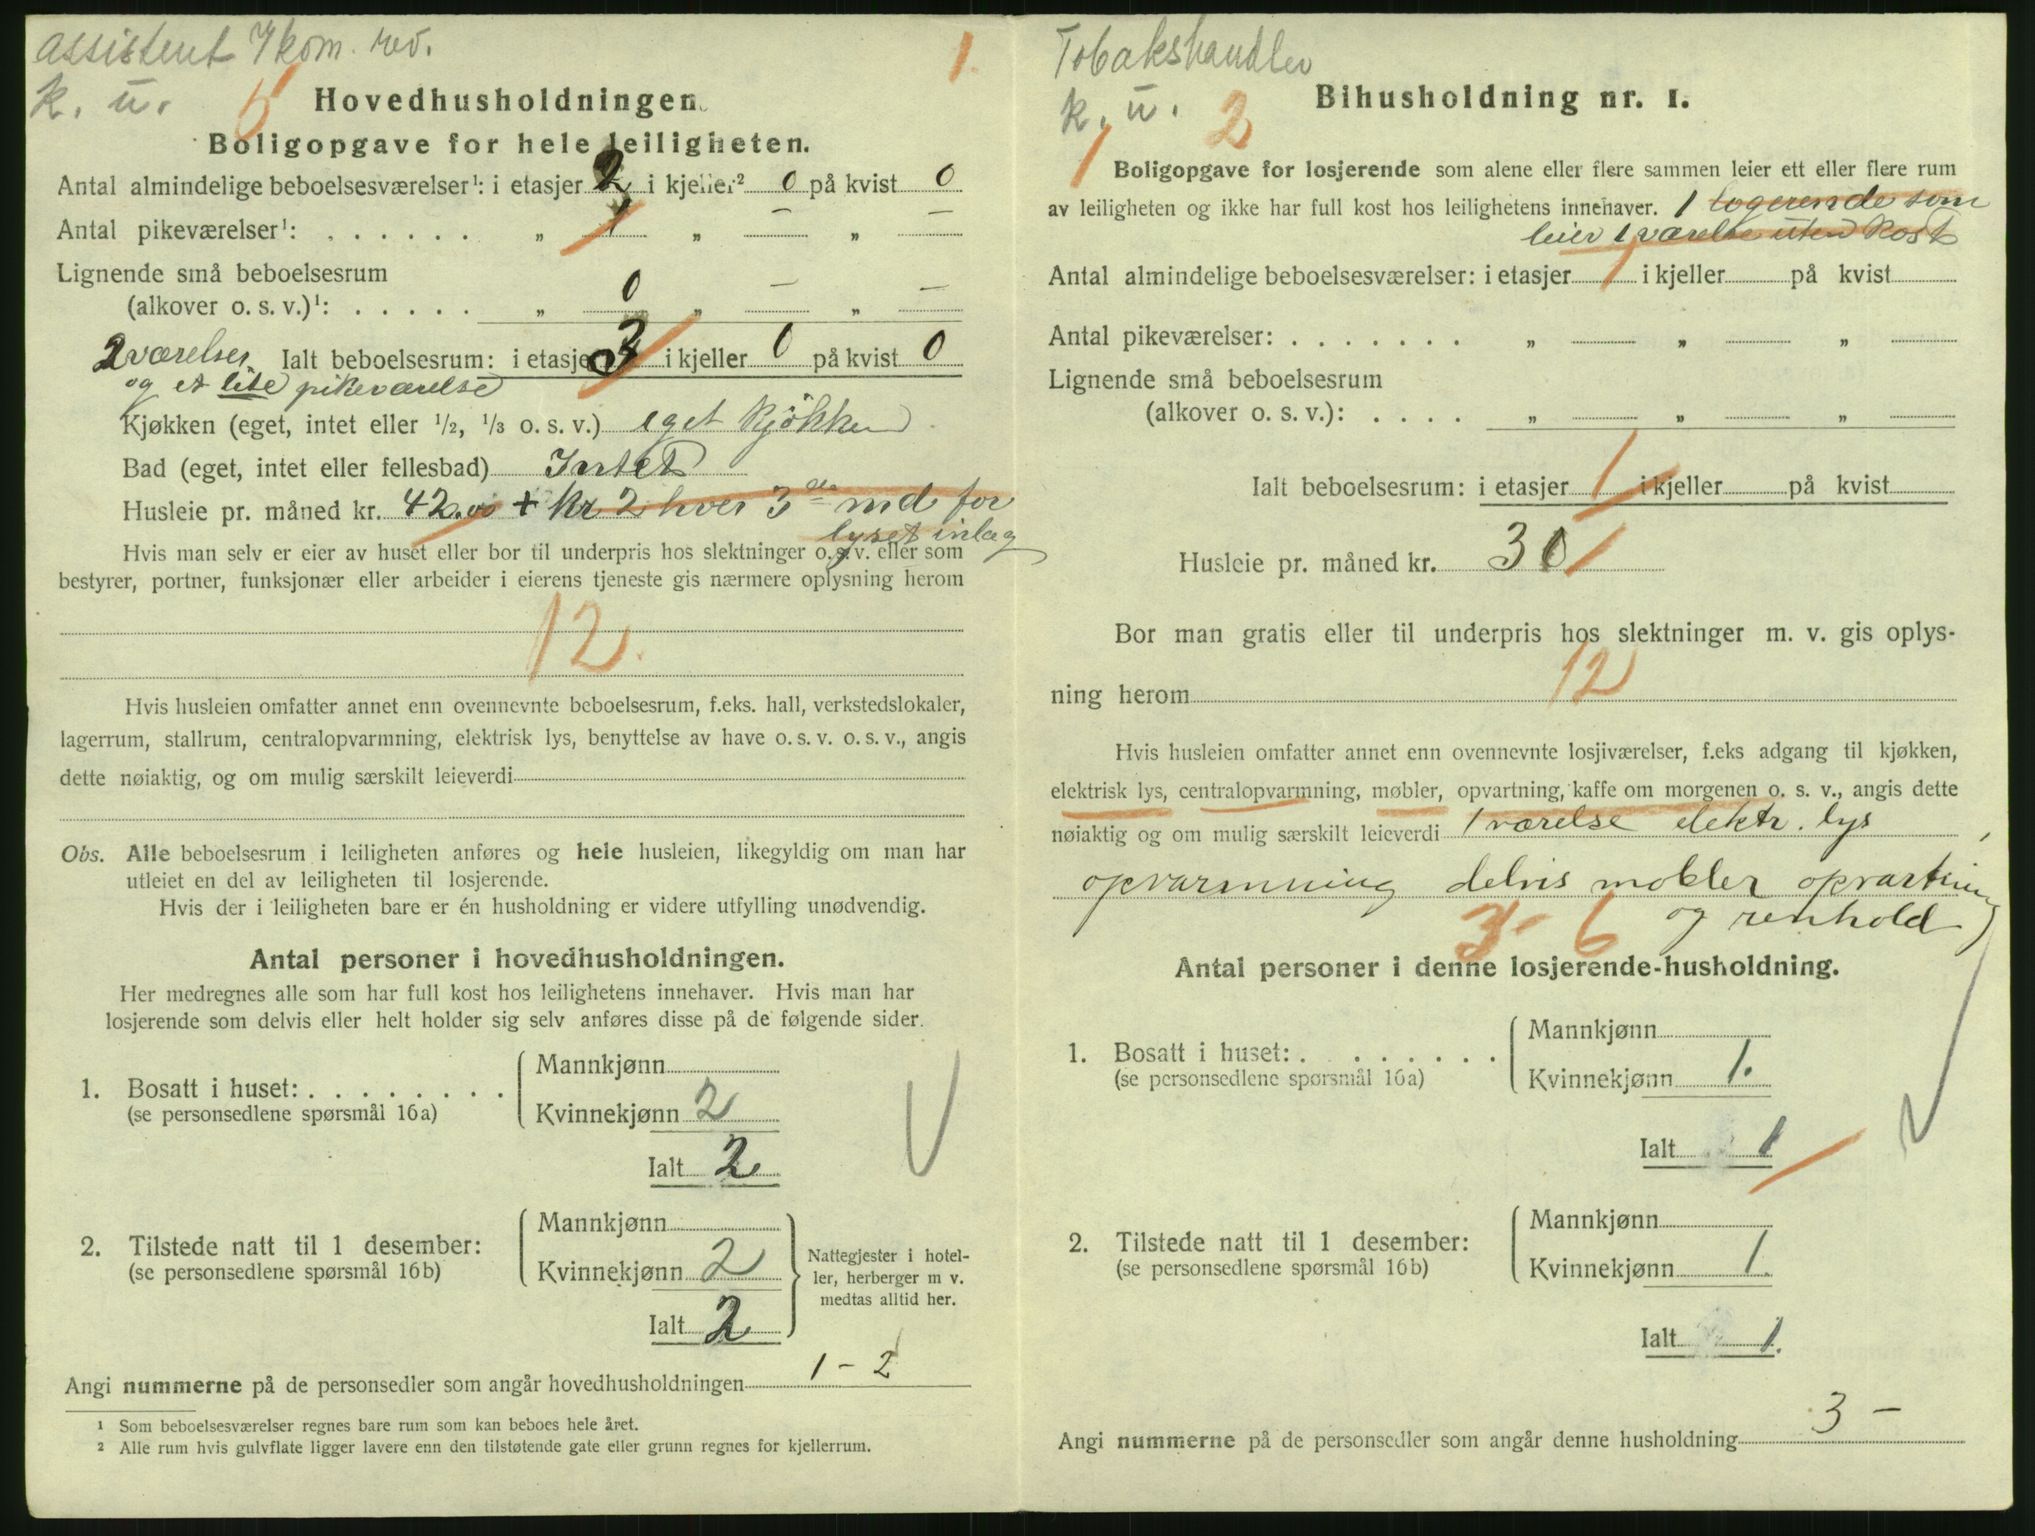 assistent I kom. rev.
k. u. 5 1.
Hovedhusholdningen.
Boligopgave for hele leiligheten.
Antal almindelige beboelsesværelser¹: i etasjer 2 i kjeller² 0 på kvist 0
Antal pikeværelser¹: . . . . . . „ 1 „ — „ —
Lignende små beboelsesrum
(alkover o. s. v.)¹: . . . . . „ 0 „ — „ —
2 værelser Ialt beboelsesrum: i etasjer 3 i kjeller 0 på kvist 0
og et lite pikeværelse
Kjøkken (eget, intet eller 1/2, 1/3 o. s. v.) eget kjøkken
Bad (eget, intet eller fellesbad) Intet
Husleie pr. måned kr. 42.00 + kr 2 hver 3de md for
lyset inlæg
Hvis man selv er eier av huset eller bor til underpris hos slektninger o. s. v. eller som
bestyrer, portner, funksjonær eller arbeider i eierens tjeneste gis nærmere oplysning herom
12.
Hvis husleien omfatter annet enn ovennevnte beboelsesrum, f.eks. hall, verkstedslokaler,
lagerrum, stallrum, centralopvarmning, elektrisk lys, benyttelse av have o. s. v. o. s. v., angis
dette nøiaktig, og om mulig særskilt leieverdi
Obs. Alle beboelsesrum i leiligheten anføres og hele husleien, likegyldig om man har
utleiet en del av leiligheten til losjerende.
Hvis der i leiligheten bare er én husholdning er videre utfylling unødvendig.
Antal personer i hovedhusholdningen.
Her medregnes alle som har full kost hos leilighetens innehaver. Hvis man har
losjerende som delvis eller helt holder sig selv anføres disse på de følgende sider.
Mannkjønn
1. Bosatt i huset: . . . . . . . .
(se personsedlene spørsmål 16a)
Kvinnekjønn 2
Ialt 2
Mannkjønn
2. Tilstede natt til 1 desember:
(se personsedlene spørsmål 16b)
Kvinnekjønn 2
Ialt 2
Nattegjester i hotel-
ler, herberger m v.
medtas alltid her.
Angi nummerne på de personsedler som angår hovedhusholdningen 1 – 2
¹ Som beboelsesværelser regnes bare rum som kan beboes hele året.
² Alle rum hvis gulvflate ligger lavere enn den tilstøtende gate eller grunn regnes for kjellerrum.
Tobakshandler
k. u. 2
Bihusholdning nr. 1.
1
Boligopgave for losjerende som alene eller flere sammen leier ett eller flere rum
av leiligheten og ikke har full kost hos leilighetens innehaver. 1 logerende som
leier 1 værelse uten kost
Antal almindelige beboelsesværelser: i etasjer 1 i kjeller på kvist
Antal pikeværelser: . . . . . . . „ „ „
Lignende små beboelsesrum
(alkover o. s. v.): . . . . „ „ „
Ialt beboelsesrum: i etasjer 1 i kjeller på kvist
Husleie pr. måned kr. 30
Bor man gratis eller til underpris hos slektninger m. v. gis oplys-
12
ning herom
Hvis husleien omfatter annet enn ovennevnte losjiværelser, f.eks adgang til kjøkken,
elektrisk lys, centralopvarmning, møbler, opvartning, kaffe om morgenen o. s. v., angis dette
nøiaktig og om mulig særskilt leieverdi 1 værelse elektr. lys
opvarmning delvis møbler opvartning
3 - 6 og renhold
Antal personer i denne losjerende-husholdning.
Mannkjønn
1. Bosatt i huset: . . . . . . . .
(se personsedlene spørsmål 16a)
Kvinnekjønn 1.
Ialt 1
Mannkjønn
2. Tilstede natt til 1 desember:
(se personsedlene spørsmål 16b)
Kvinnekjønn 1.
Ialt 1.
3 –
Angi nummerne på de personsedler som angår denne husholdning